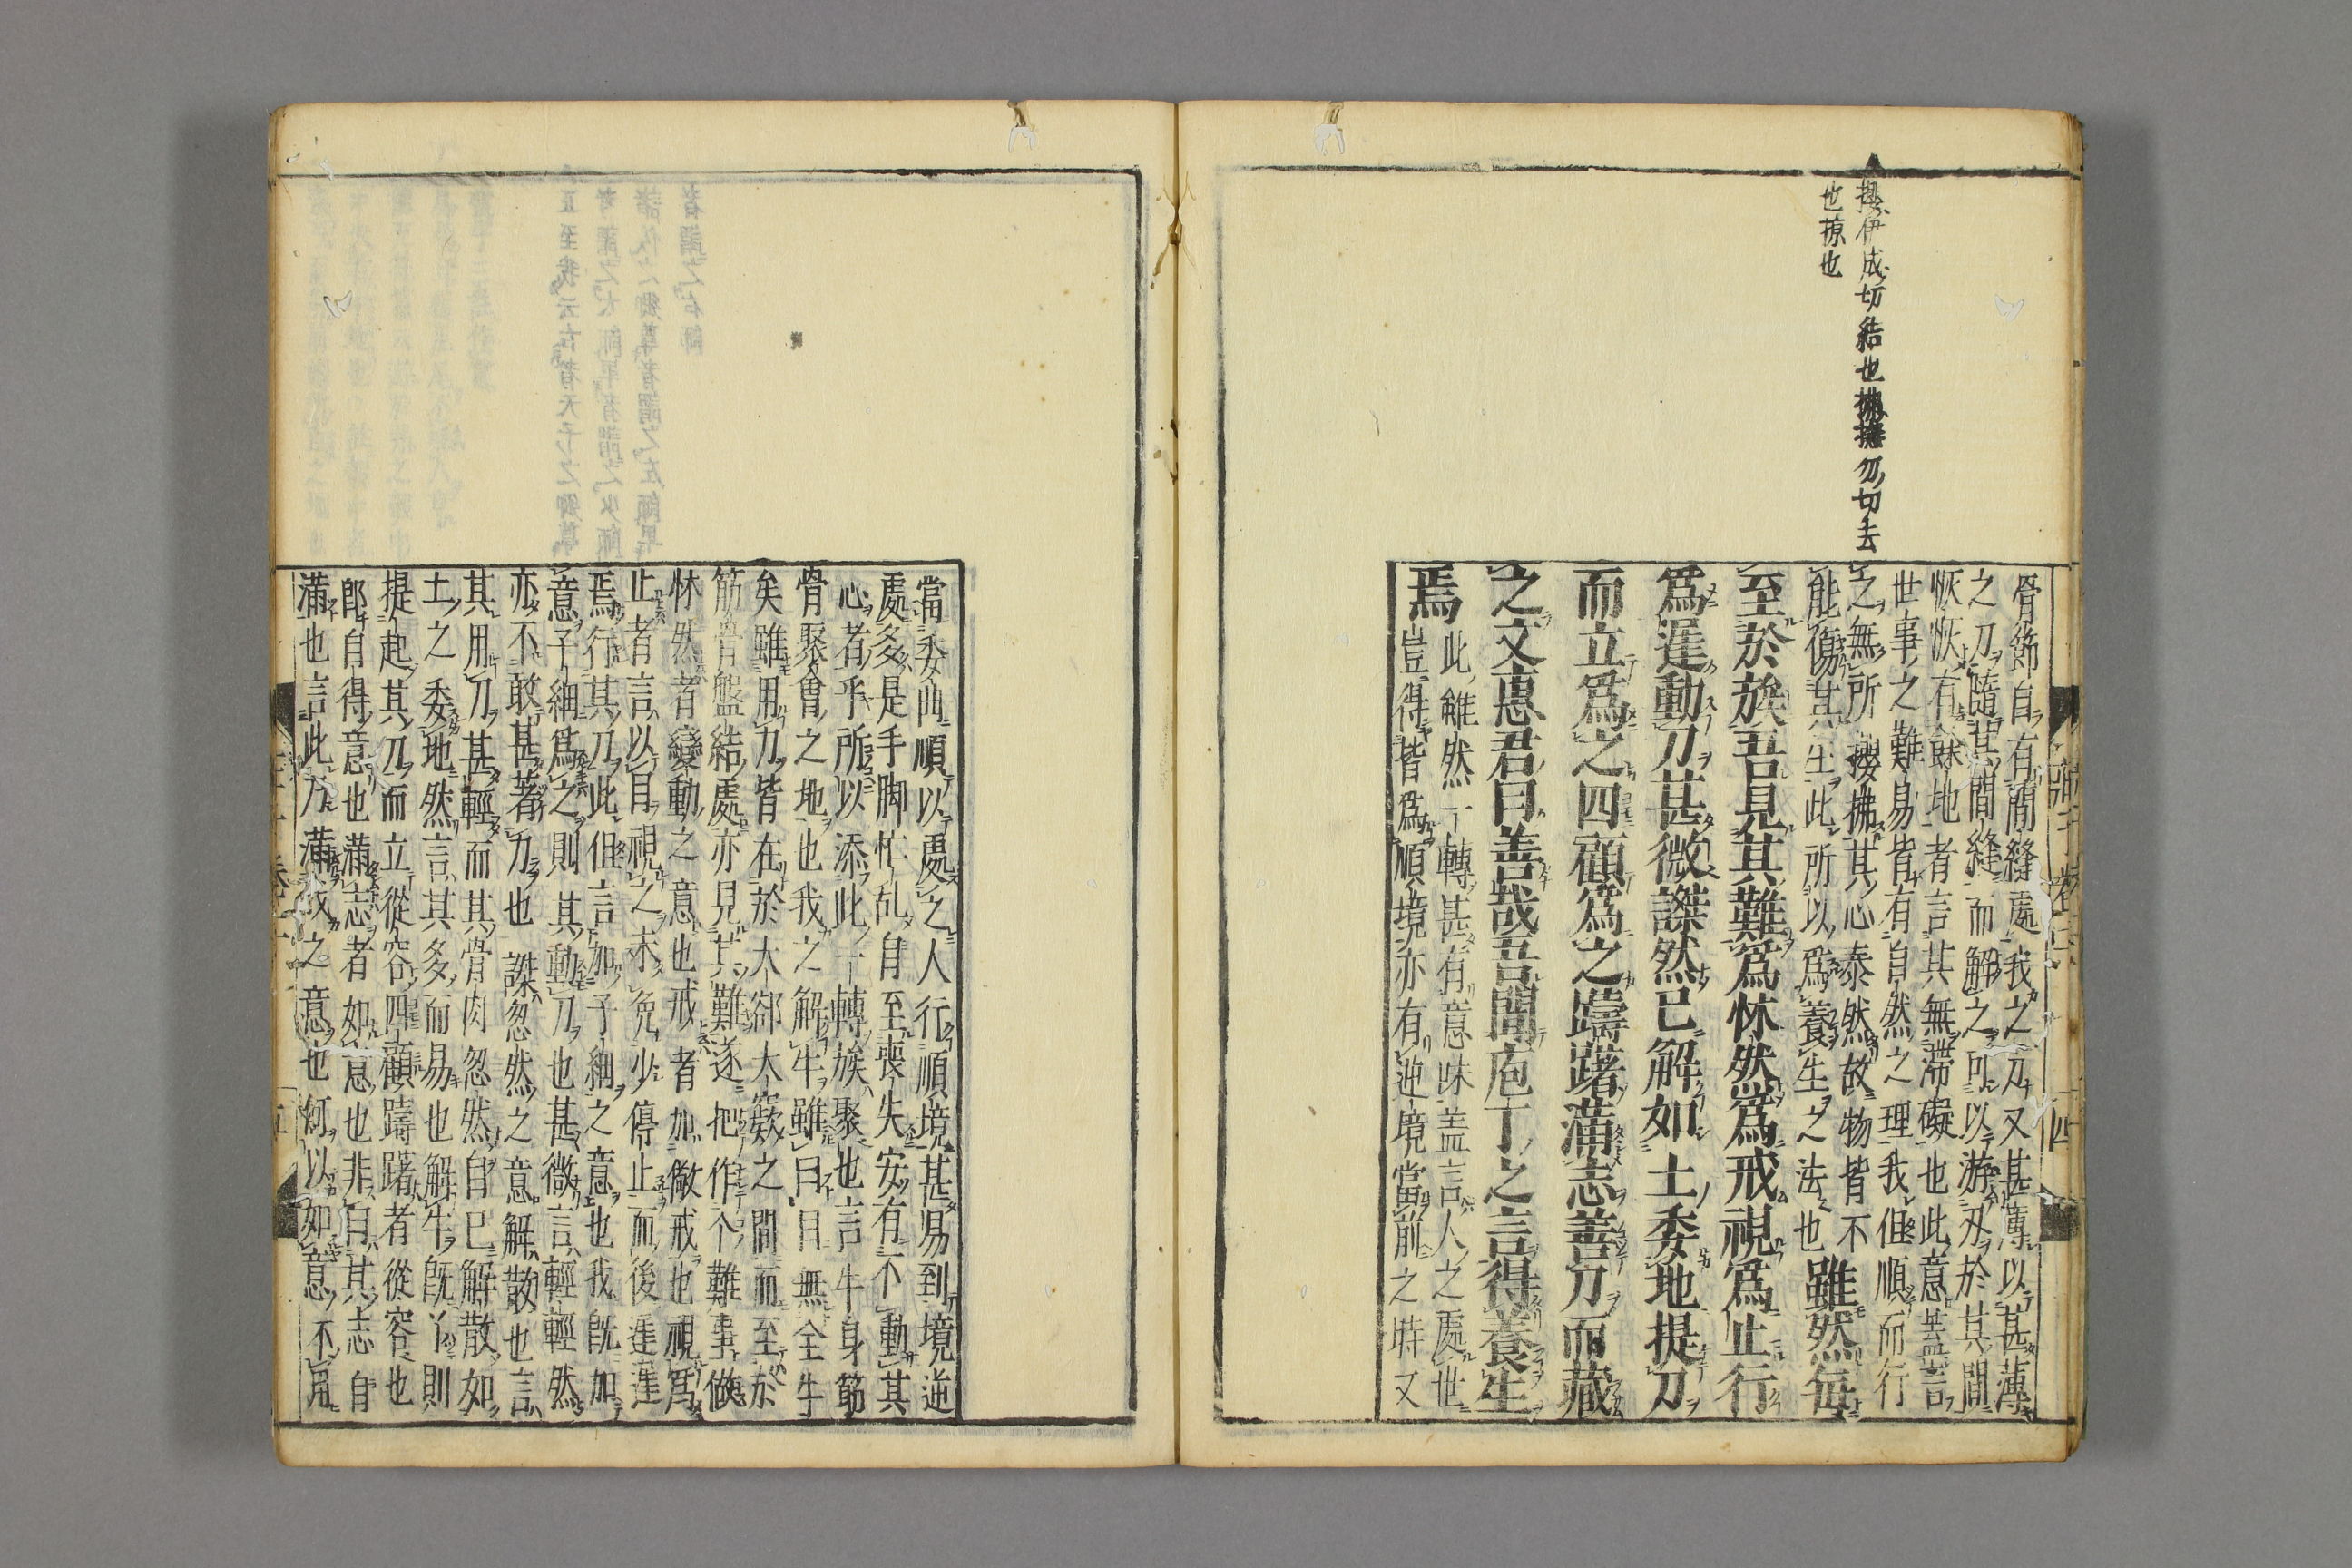 攖伊成切結也拂撫勿切去
也掠也
骨節自有間縫處我之刀又甚薄以甚薄
之刀隨其間縫而解之可以游刃於其間
恢恢有餘地者言其無滯礙也此意蓋言
世事之難易皆有自然之理我但順而行
之無所攖拂其心泰然故物皆不
能傷其生此所以爲養生之法也 雖然每
至於族吾見其難爲怵然爲戒視爲止行
爲遲動刀甚微謋然已解如土委地提刀
而立爲之四顧爲之躊躇滿志善刀而藏
之文惠君曰善哉吾聞庖丁之言得養生
焉
此雖然一轉甚有意味蓋言人之處世
豈得皆爲順境亦有逆境當前之時又
當委曲順以處之人行順境甚易到境逆
處多是手脚忙乱自至喪失安有不動其
心者乎所以添此一轉族聚也言牛身節
骨聚會之地也我之解牛雖曰目無全牛
矣雖用刀皆在於大郤大窾之間而至於
筋骨盤結處亦見其難遂把作个難事做
怵然者變動之意也戒者加儆戒也視爲
止者言以目視之未免少停止而後遲遲
焉行其刀此但言加子細之意也我既加
意子細爲之則其動刀也甚微言輕輕然
亦不敢甚著力也謋忽然之意解散也言
其用刀甚輕而其骨肉忽然自已解散如
土之委地然言其多而易也解牛既了則
提起其刀而立從容四顧躊躇者從容也
郎自得意也滿志者如意也非自其志自
滿也言此乃滿我之意也何以如意不
四
五